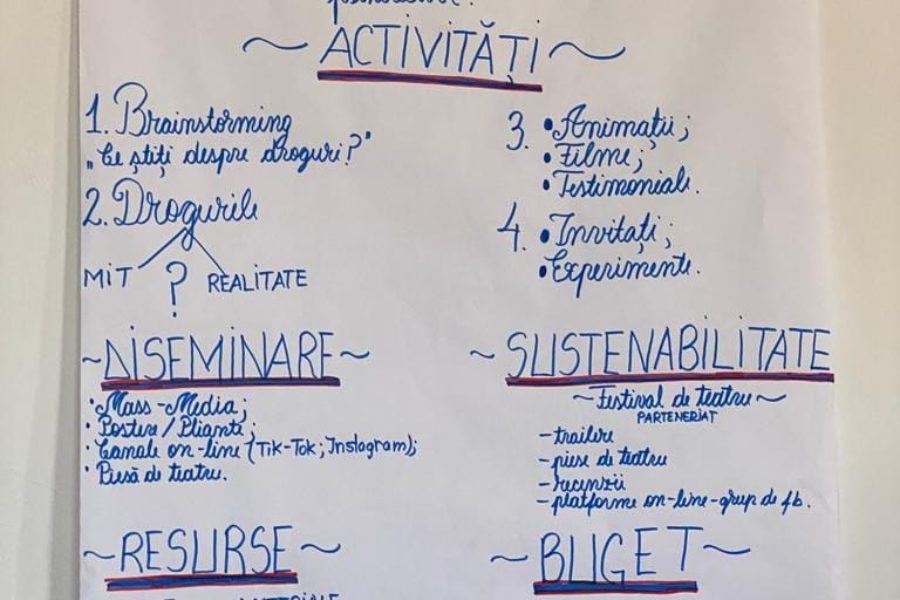 ~ ACTIVITĂȚI ~
1. Brainstorming
„Ce știți despre droguri?"
2. Drogurile
MIT ? REALITATE
3. • Animații;
• Filme;
• Testimoniale.
4. • Invitați;
• Experimente.
~DISEMINARE~
• Mass-Media;
• Postere/Pliante;
• Canale on-line (Tik-Tok; Instagram);
• Piesă de teatru.
~ SUSTENABILITATE
~Festival de teatru~
PARTENERIAT
- trailere
- piese de teatru
- recenzii
- platforme on-line-grup de fb.
~RESURSE~
~BUGET~